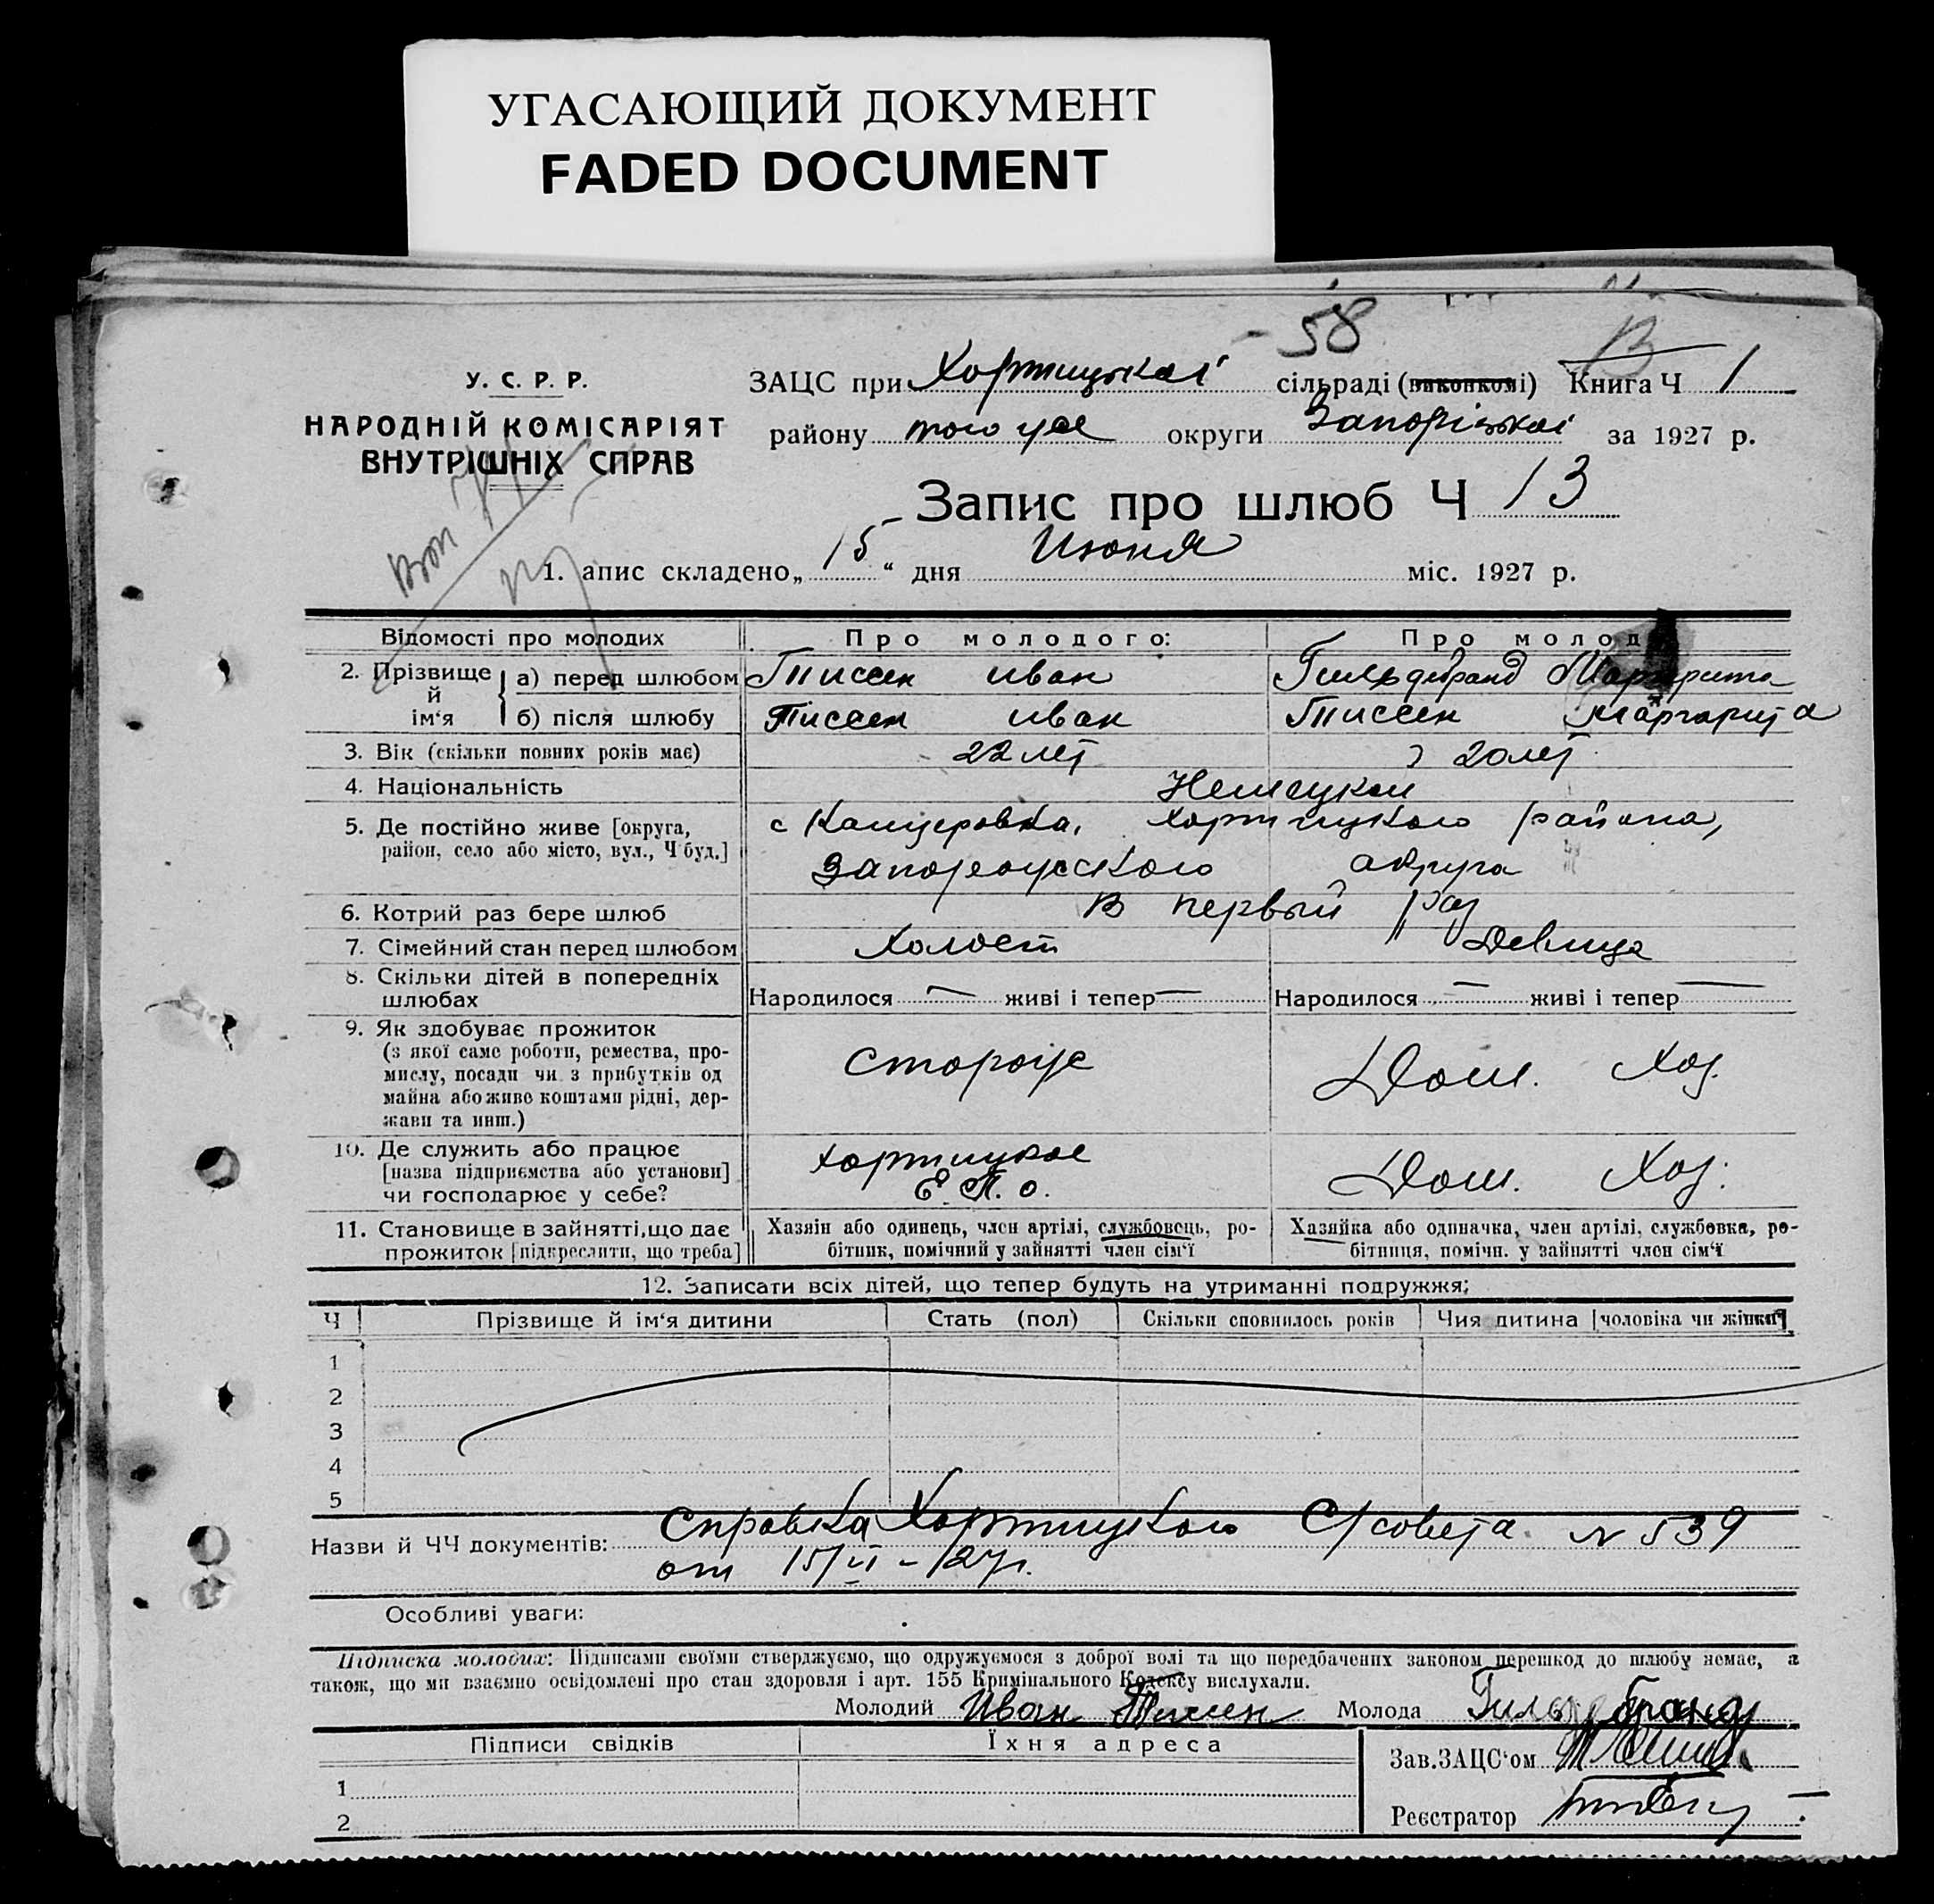 УГАСАЮЩИЙ ДОКУМЕНТ
FADED DOCUMENT
58
В
У. С. Р. Р.
НАРОДНІЙ КОМІСАРІЯТ
ВНУТРІШНІХ СПРАВ
ЗАЦС при Хортицької сільраді (виконкомі) Книга Ч 1
району того же округи Запоріжкої за 1927 р.
Запис про шлюб Ч 13
1. апис складено „15“ дня Июня міс. 1927 р.
Відомості про молодих Про молодого: Про молод
2. Прізвище й ім‘я
а) перед шлюбом Тиссен Иван Гильдебранд Маргарита
б) після шлюбу Тиссен Иван Тиссен Маргарита
3. Вік (скільки повних років має) 22 лет 20 лет
4. Національність Немецкой
5. Де постійно живе [округа, с Канцеровка, Хортицкого района,
район, село або місто, вул., Ч буд.] Запорожского округа
6. Котрий раз бере шлюб В первый раз
7. Сімейний стан перед шлюбом Холост Девица
8. Скільки дітей в попередніх
шлюбах Народилося — живі і тепер — Народилося — живі і тепер —
9. Як здобуває прожиток
(з якої саме роботи, ремества, про-
мислу, посади чи з прибутків од
майна або живе коштами рідні, дер-
жави та инш.)
Сторож Дом. Хоз.
10. Де служить або працює
[назва підприємства або установи]
чи господарює у себе?
Хортицкое
Е. П. о.
Дом. Хоз.
11. Становище в зайнятті, що дає Хазяїн або одинець, член артілі, службовець, ро- Хазяйка або одиначка, член артілі, службовка, ро-
прожиток [підкреслити, що треба] бітник, помічний у зайнятті член сім‘ї бітниця, помічн. у зайнятті член сім‘ї
12. Записати всіх дітей, що тепер будуть на утриманні подружжя;
Ч Прізвище й ім‘я дитини Стать (пол) Скільки сповнилось років Чия дитина [чоловіка чи жінки]
1
2
3
4
5
Назви й ЧЧ документів: Справка Хортицкого С/совета N 539
от 15/VI – 27 г.
Особливі уваги:
Підписка молодих: Підписами своїми стверджуємо, що одружуємося з доброї волі та що передбачених законом перешкод до шлюбу немає, а
також, що ми взаємно освідомлені про стан здоровля і арт. 155 Кримінального Кодексу вислухали.
Молодий Иван Тиссен Молода Гильдебранд
Підписи свідків Їхня адреса
Зав.ЗАЦС‘ом
1
Реєстратор
2